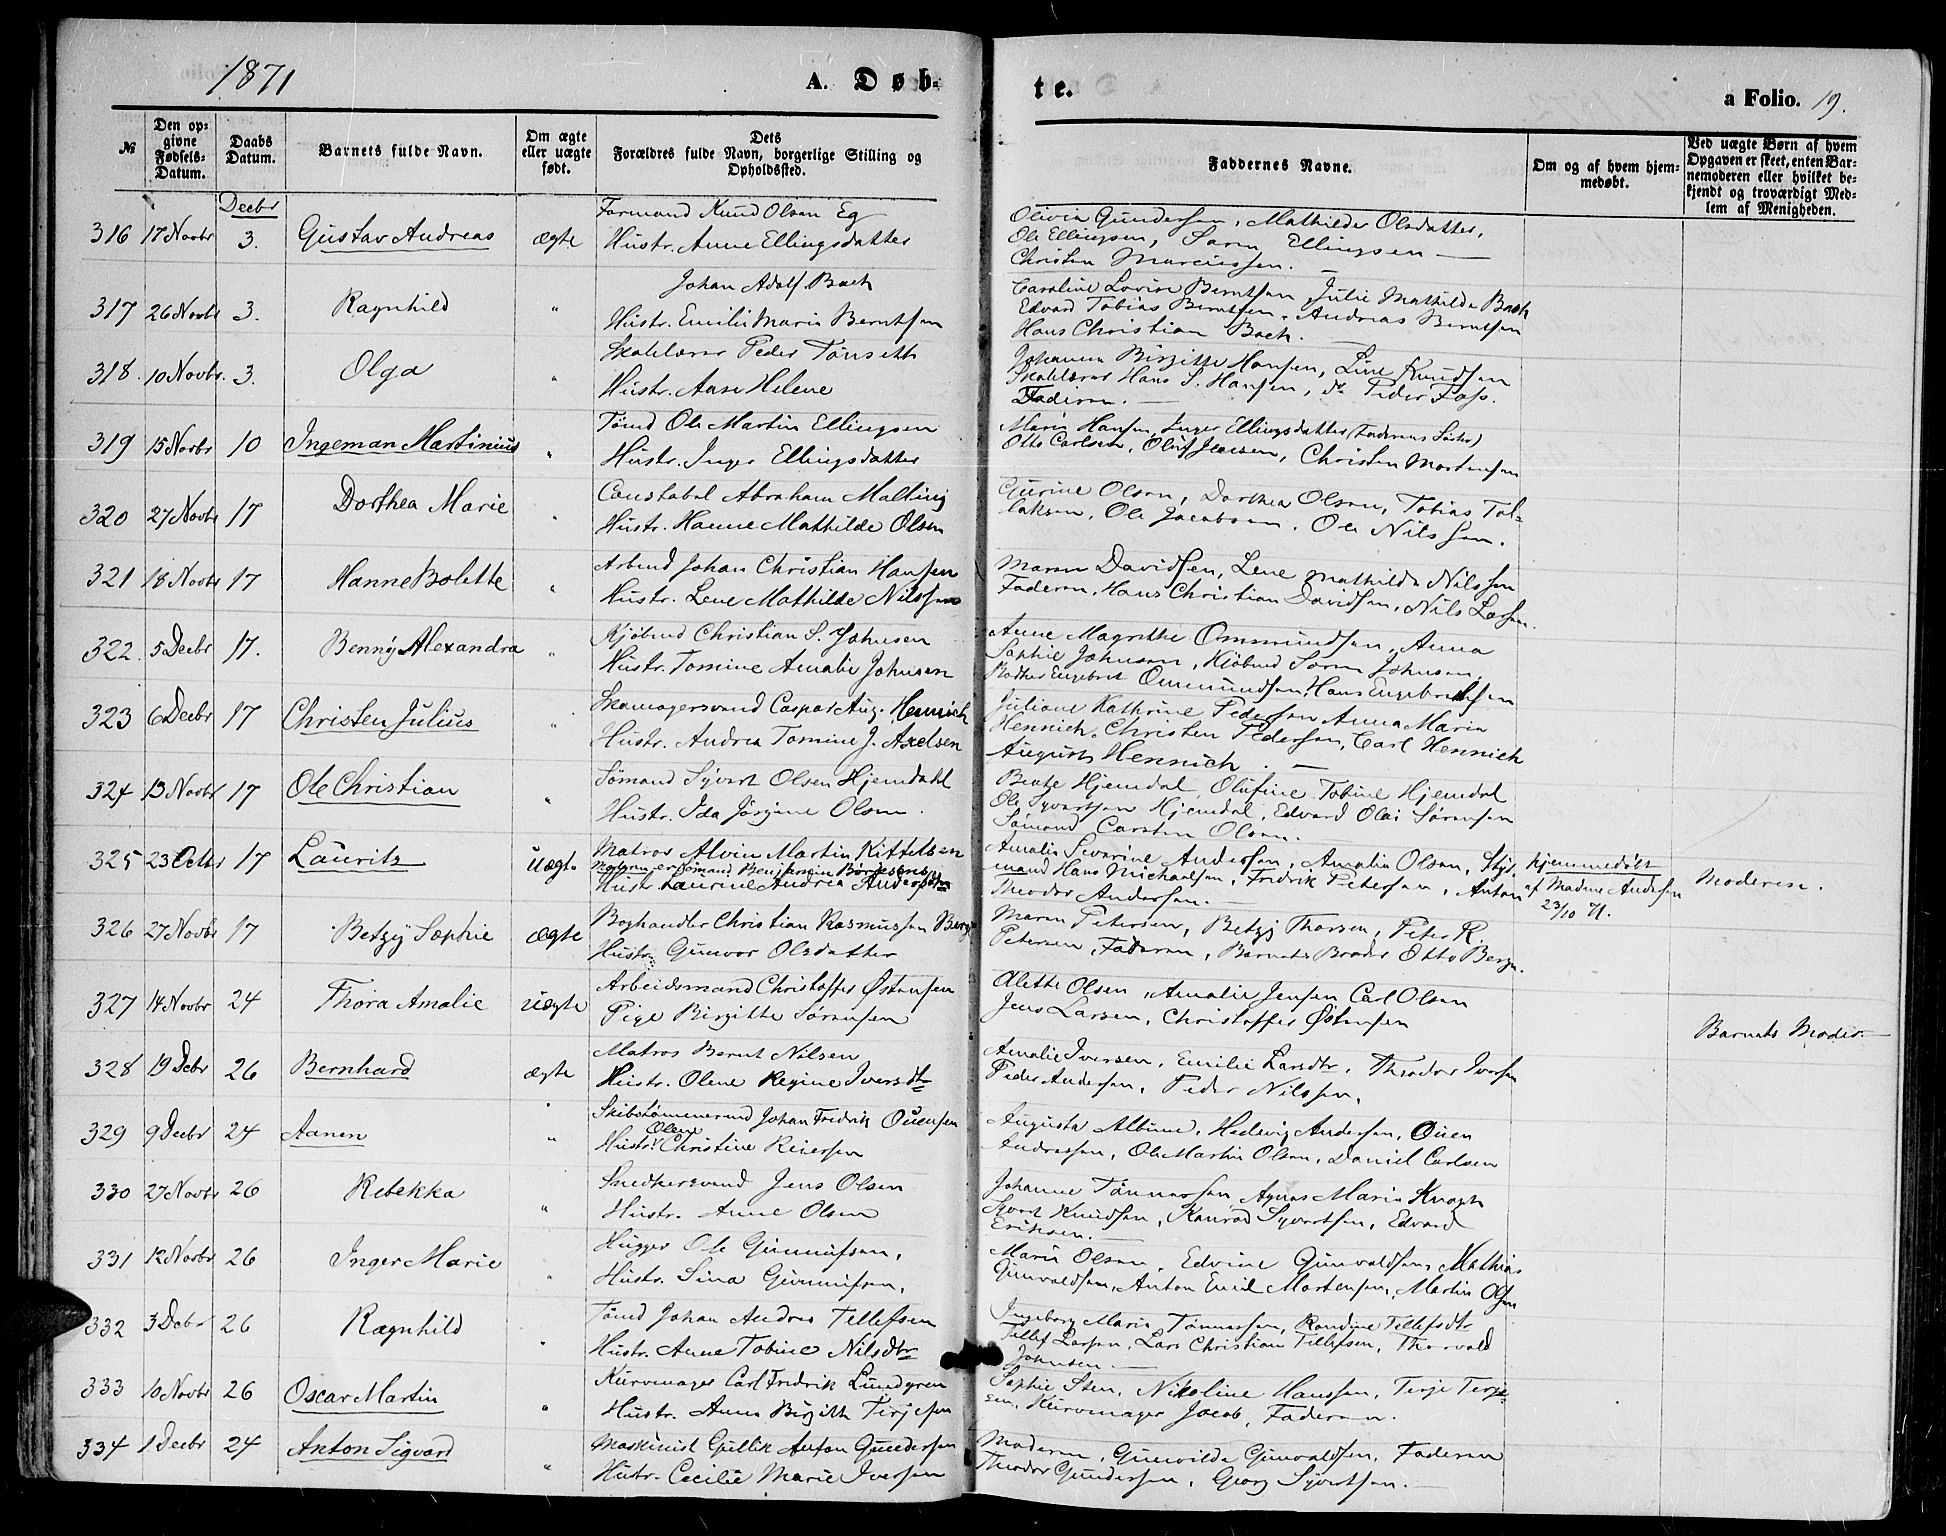 1871
A. Døb-
te.
a Folio. 19.
№
Den op-
givne
Fødsels-
Datum.
Daabs
Datum.
Barnets fulde Navn.
Om ægte
eller uægte
født.
Dets
Forældres fulde Navn, borgerlige Stilling og
Opholdssted.
Faddernes Navne.
Om og af hvem hjem-
medøbt.
Ved uægte Børn af hvem
Opgaven er skeet, enten Bar-
nemoderen eller hvilket be-
kjendt og troværdigt Med-
lem af Menigheden.
Decbr
316 17 Novbr 3. Gustav Andreas ægte
Formand Knud Olsen Eg
Hustr. Anne Ellingsdatter
Olivia Gundersen, Mathilde Olsdatter,
Ole Ellingsen, Søren Ellingsen
Christen Marcussen.
317 26 Novbr 3. Ragnhild "
Johan Adolf Bach
Hustr. Emilie Maria Berntsen
Caroline Lovise Berntsen, Julie Mathilde Bach
Edvard Tobias Berntsen, Andreas Berntsen
Hans Christian Bach.
318. 10 Novbr. 3. Olga "
Skolelærer Peder Tønseth
Hustr. Aase Helene
Johanna Birgitte Hansen, Line Knudsen
Skolelærer Hans S. Hansen, do Peder Foss.
Faderen.
319 15 Novbr 10 Ingeman Martinius "
Tømd Ole Martin Ellingsen
Hustr. Inger Ellingsdatter
Maria Hansen, Inger Ellingsdatter (Faderens Søster)
Otto Carlsen, Oluf Jensen, Christen Mortensen
320 27 Novbr 17 Dorthea Marie "
Constabel Abraham Malting
Hustr. Hanne Mathilde Olsen
Gurine Olsen, Dorthea Olsen, Tobias Tol-
laksen, Ole Jacobsen, Ole Nilssen.
321 18 Novbr 17 Hanne Bolette "
Arbmd Johan Christian Hansen
Hustr. Lene Mathilde Nilssen
Maren Davidsen, Lene Mathilde Nilssen
Faderen, Hans Christian Davidsen, Nils Larsen.
322. 5 Decbr 17. Benny Alexandra "
Kjøbmd Christian S. Johnsen
Hustr. Tomine Amalie Johnsen
Anne Magrethe Ommundsen, Anna
Sophie Johnsen, Kjøbmd Søren Johnsen,
Engebret Ommundsen, Hans Engebretsen
323 6 Decbr 17 Christen Julius "
Skomagersvend Caspar Aug. Hennich
Hustr. Andrea Tomine J. Axelsen
Juliane Kathrine Pedersen, Anna Maria
Hennich, Christen Pedersen, Carl Hennich
August Hennich.
324 13 Novbr 17 Ole Christian "
Sømand Syvert Olsen Hjemdahl
Hustr. Ida Jørgine Olsen.
Beate Hjemdal, Olufine Tobine Hjemdal
Ole Syvertsen Hjemdal, Edvard Olai Sørensen
Sømand Carsten Olsen.
325 23 Octbr 17 Lauritz uægte
Matros Alvin Martin Kittelsen
Moderen er Sømand Benjamin Børgesens
Hustr. Laurine Andrea Andersdtr
Amalie Severine Andersen, Amalia Olsen, Styr-
mand Hans Michaelsen, Fredrik Petersen, Anton
Theodor Andersen.
hjemmedøbt
af Madme Andersen
23/10 71.
Moderen.
326 27 Novbr 17 Betzy Sophie ægte
Boghandler Christian Rasmussen Berge
Hustr Gunvor Olsdatter
Maren Petersen, Betzy Thorsen, Peter R.
Petersen, Faderen, Barnets Broder Otto Berge.
327 14 Novbr 24 Thora Amalie uægte
Arbeidsmand Christoffer Østensen
Pige Birgitte Sørensen
Alette Olsen, Amalie Jensen Carl Olsen
Jens Larsen, Christoffer Østensen
Barnets Moder
328 19 Debr 26 Bernhard ægte
Matros Bernt Nilsen
Hustr. Olene Regine Iversdtr
Amalie Iversen, Emilie Larsdtr, Theodor Iversen
Peder Andersen, Peder Nilssen,
329 9 Decbr 24 Aanen "
Skibstømmermd Johan Fredrik Ouensen
Olene
Hustr. Christine Reiersen
Augusta Albine, Hedevig Andersen, Ouen
Andreassen, Ole Martin Olsen, Daniel Carlsen
330 27 Novbr 26 Rebekka "
Snedkersvend Jens Olsen
Hustr. Anne Olsen
Johanne Tønnessen Agnes Maria Knoph
Syvert Knudsen, Konrad Syvertsen, Edvard
Eriksen.
331 12 Novbr 26 Inger Marie "
Hugger Ole Gunnufsen,
Hustr. Sina Gunnufsen,
Maria Olsen, Edvine Gunvaldsen, Mathias
Gunvaldsen, Anton Emil Mortensen, Martin Olsen
332 3 Debr 26 Ragnhild "
Tømd Johan Andreas Tellefsen
Hustr. Anne Tobine Nilsdtr
Ingeborg Maria Tønnessen, Randine Tellefsdtr
Tellef Larsen, Lars Christian Tellefsen, Thorvald
Johnsen.
333 10 Novbr 26 Oscar Martin "
Kurvmager Carl Fredrik Lundgren
Hustr. Anne Birgithe Terjesen
Sophie Sten, Nikoline Hanssen, Terje Terje-
sen, Kurvmager Jacob, Faderen.
334 1 Decbr 24 Anton Sigvard "
Maskinist Gullik Anton Gundersen
Hustr. Cecilie Marie Iversen
Moderen, Gunvilde Gunvaldsen, Faderen
Theodor Gundersen, Georg Syvertsen.